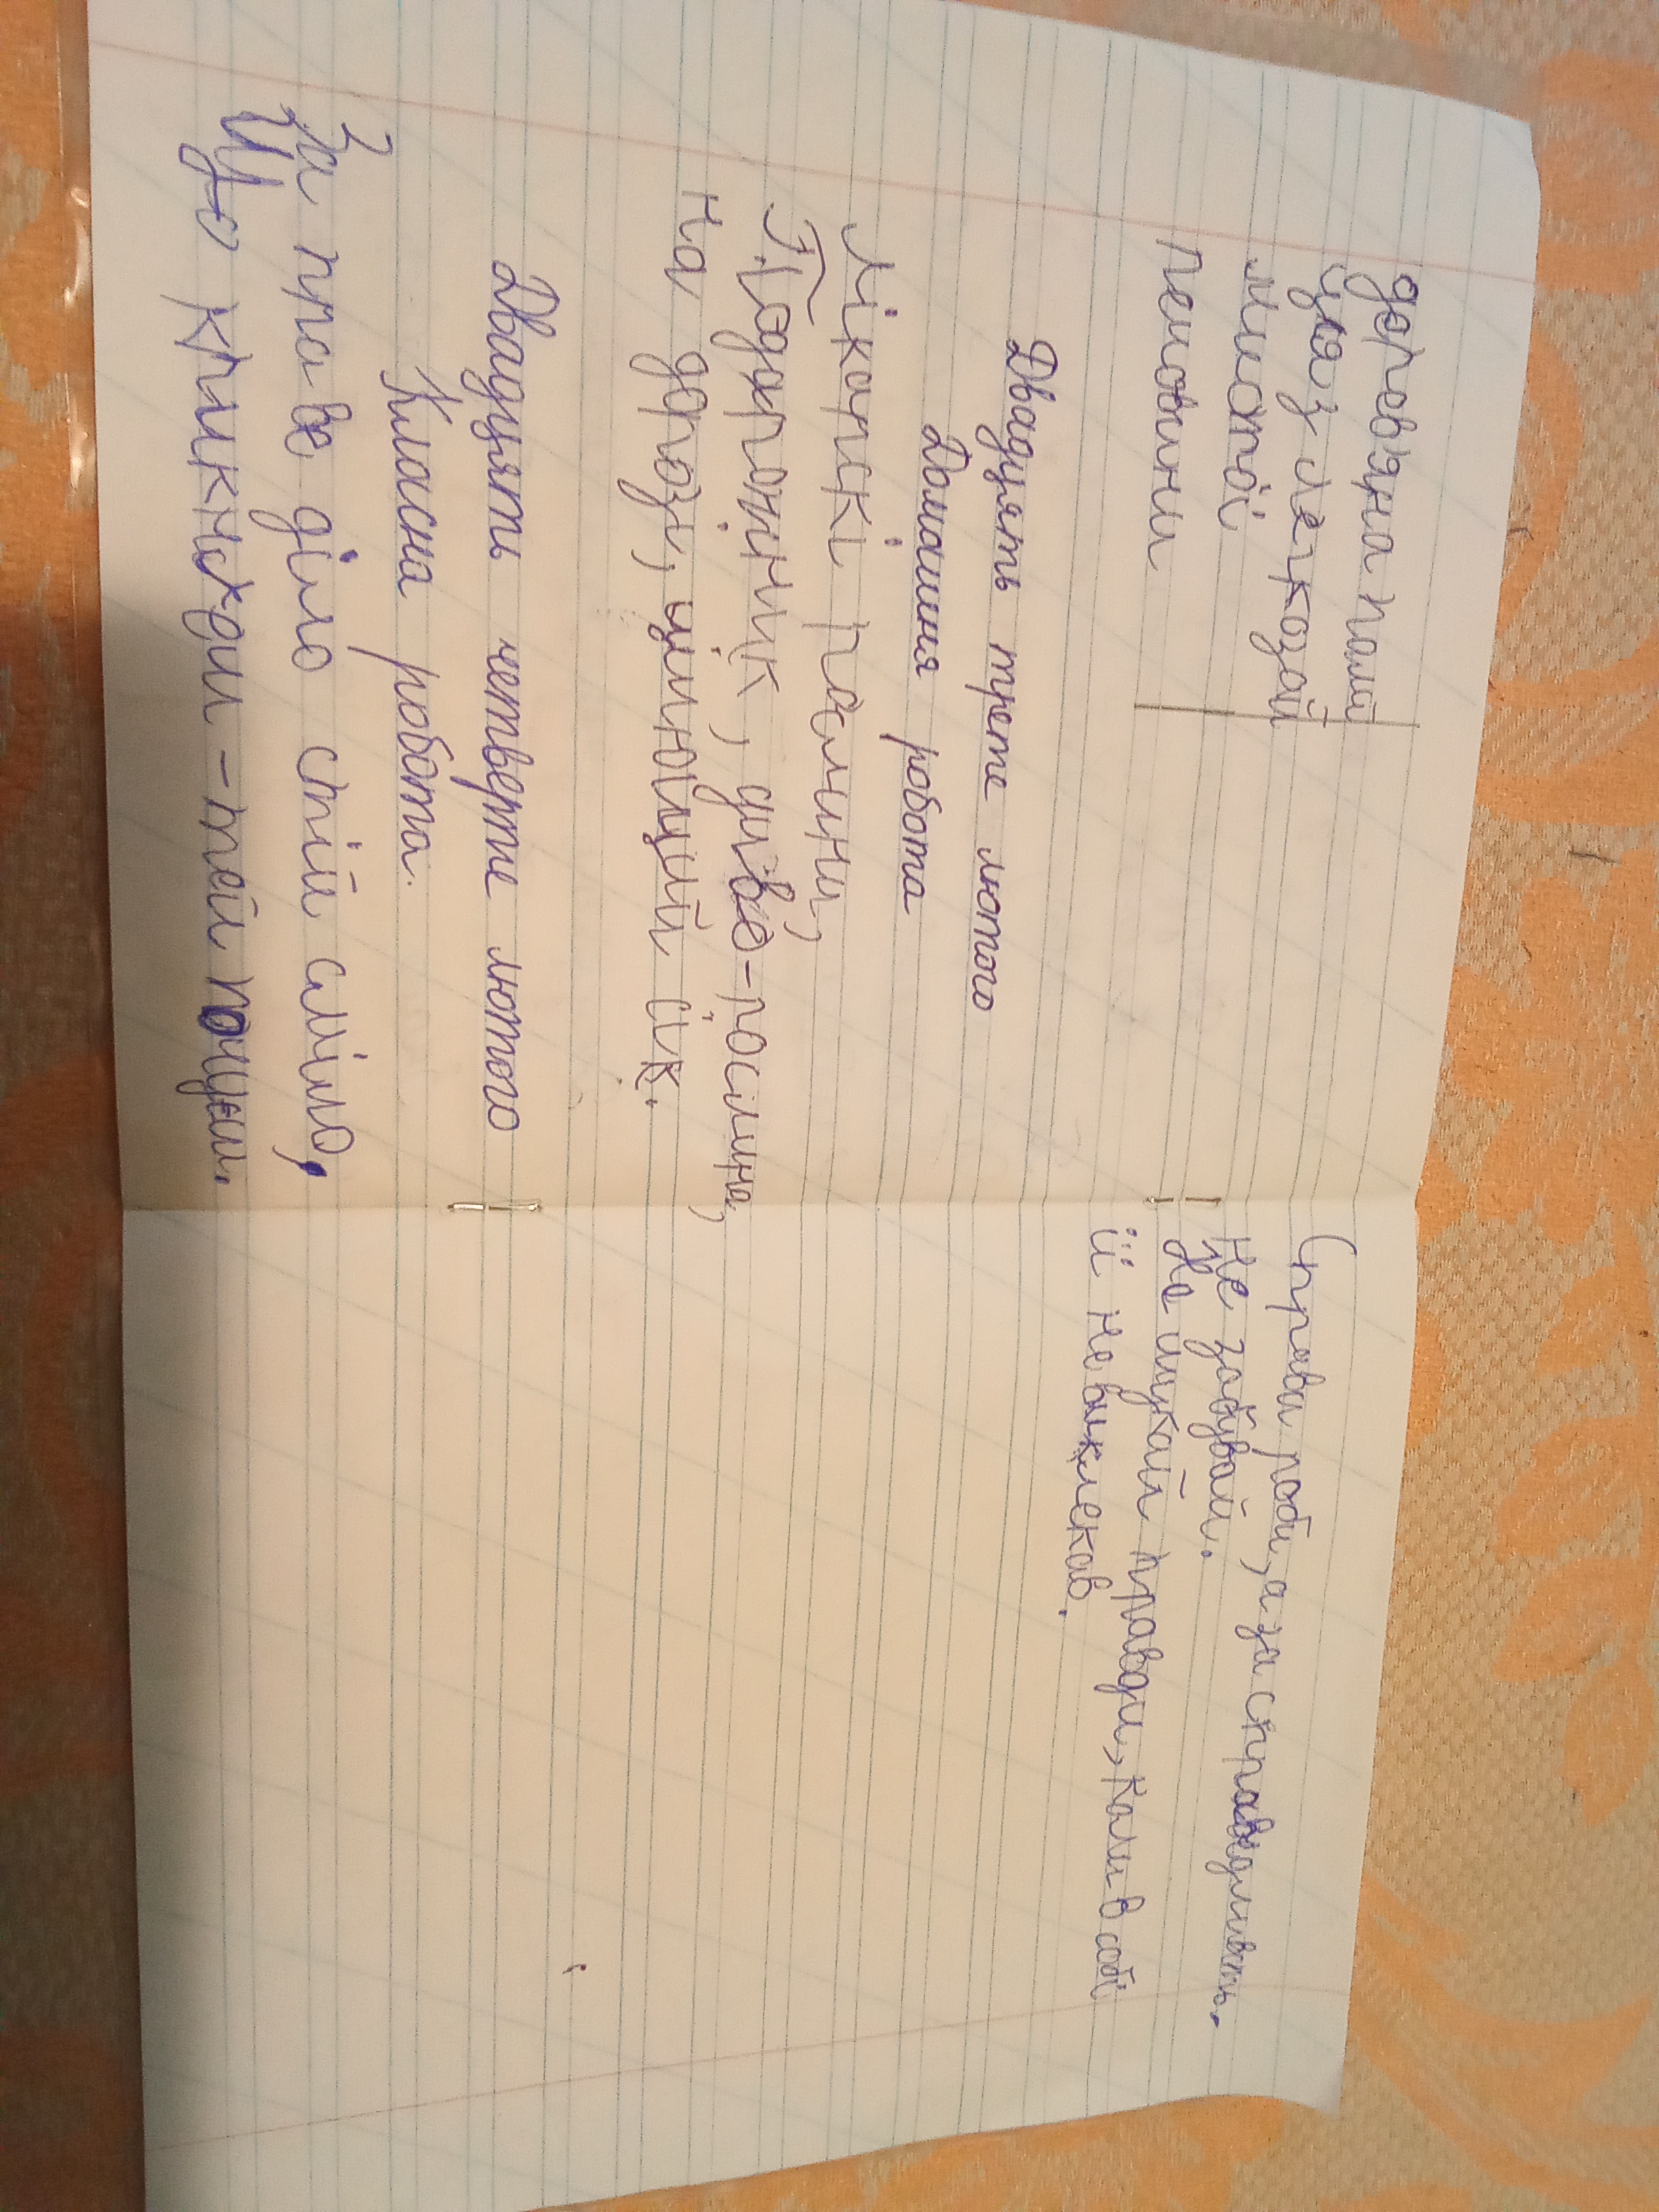 дерев'яна палій
цяз легкозай
листої
печовини
Двадцять третє лютого
Домашня робота
Лікарскі рослини,
Подорожник, диво-рослина,
на дорозі, цілющий сік.
Двадцять четверте лютого
Класна робота.
За праве діло стій сміло,
Що криκнжди - тей пощи.
Справи роби, а за справедливість.
не забувай.
Не шукай правди, коли в собі
її не викликав.